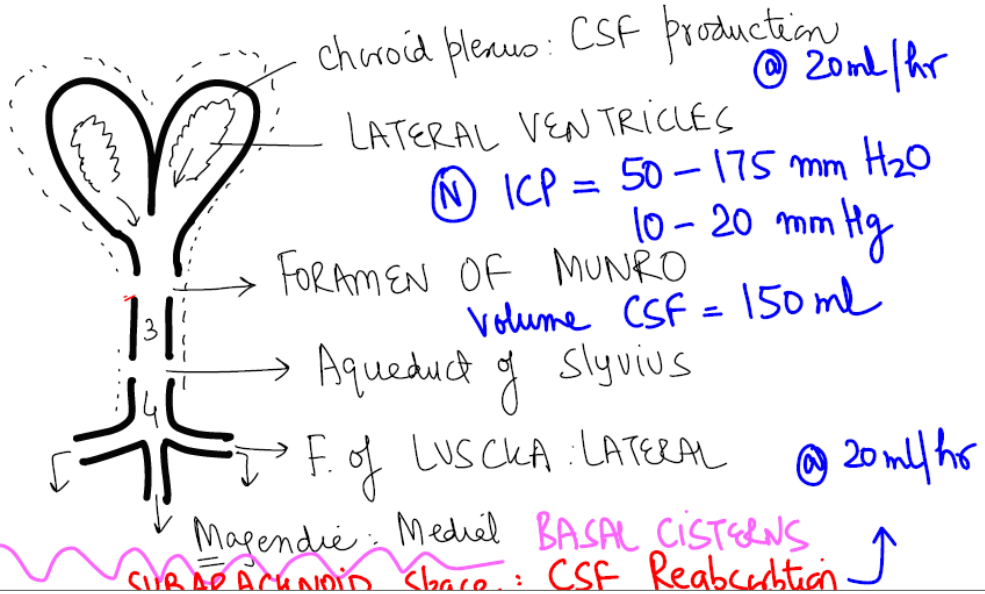 choroid plexus: CSF production
@ 20ml/hr
LATERAL VENTRICLES
(N) ICP = 50 – 175 mm H2O
10 – 20 mm Hg
FORAMEN OF MUNRO
Volume CSF = 150 ml
3
Aqueduct of Slyvius
4
F. of LUSCKA : LATERAL
@ 20ml/hr
Magendie: Medial BASAL CISTERNS
SUBARACHNOID Space : CSF Reabsorbtion